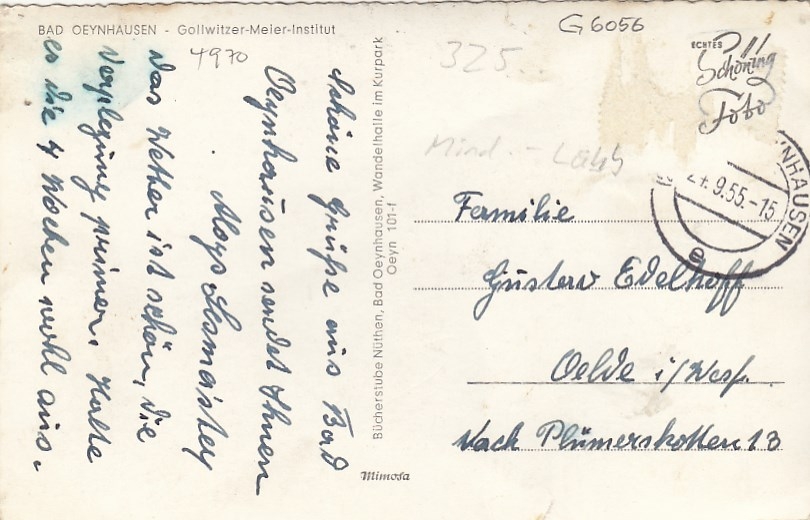 BAD OEYNHAUSEN - Gollwitzer-Meier-Institut
4970
G 6056
325
ECHTES
Schöning
Foto
Schöne Grüße aus Bad
Oeynhausen sendet Ihnen
Aloys
Das Wetter ist schön, die
Verpflegung prima. Halte
es die 4 Wochen wohl aus.
Bücherstube Nüthen, Bad Oeynhausen, Wandelhalle im Kurpark
Oeyn 101-f
Mimosa
NHAUSEN
9.55.-15
e
Familie
Gustav Edelhoff
Oelde i/Westf.
Nach Plümerskotten 13